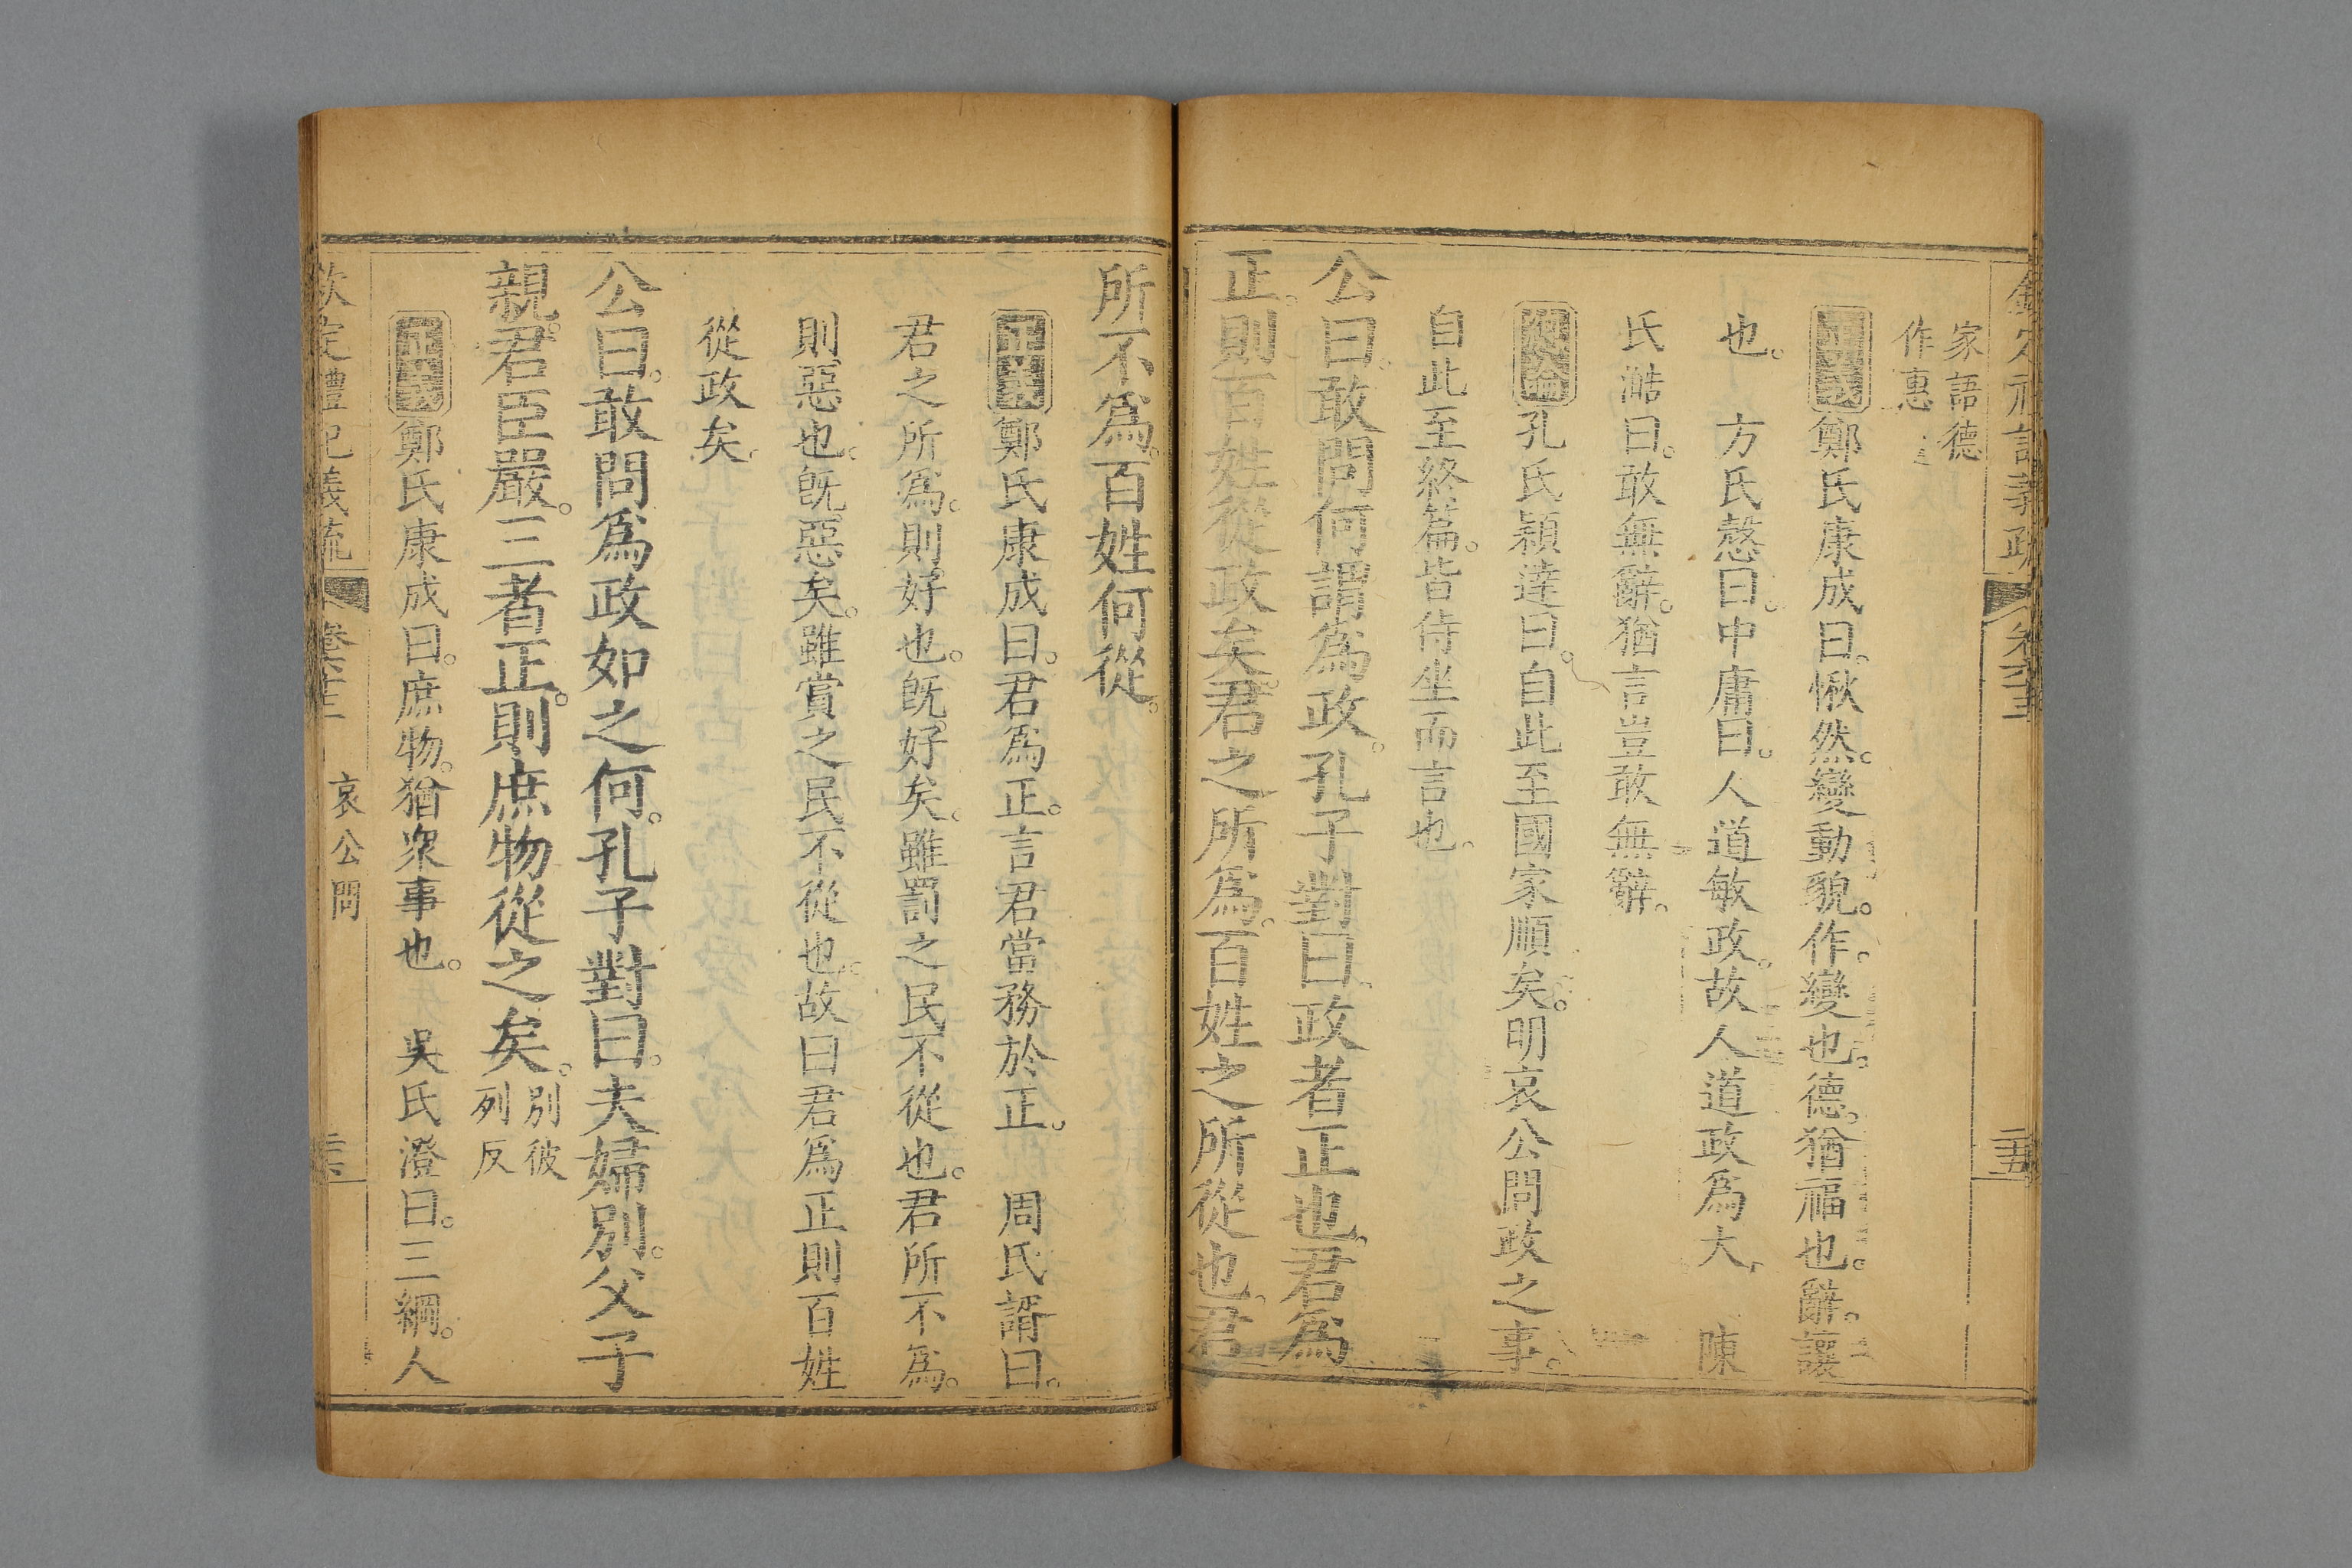 家語德
作惠
正義鄭氏康成曰。愀然。變動貌。作。變也。德。猶福也。辭。讓
也。　方氏慤曰。中庸曰。人道敏政。故人道政為大。　陳
氏澔曰。敢無辭。猶言豈敢無辭。
通論孔氏穎達曰。自此至國家順矣。明哀公問政之事。
自此至終篇。皆侍坐而言也。
公曰。敢問何謂為政。孔子對曰。政者正也。君為
正。則百姓從政矣。君之所為。百姓之所從也。君
所不為。百姓何從。
正義鄭氏康成曰。君為正。言君當務於正。　周氏諝曰。
君之所為。則好也。旣好矣。雖罰之民不從也。君所不為。
則惡也。旣惡矣。雖賞之民不從也。故曰君為正則百姓
從政矣。
公曰。敢問為政如之何。孔子對曰。夫婦別。父子
親。君臣嚴。三者正。則庶物從之矣。別彼
列反
正義鄭氏康成曰。庶物。猶衆事也。　吳氏澄曰。三綱。人
欽定禮記義疏 卷六十三 哀公問